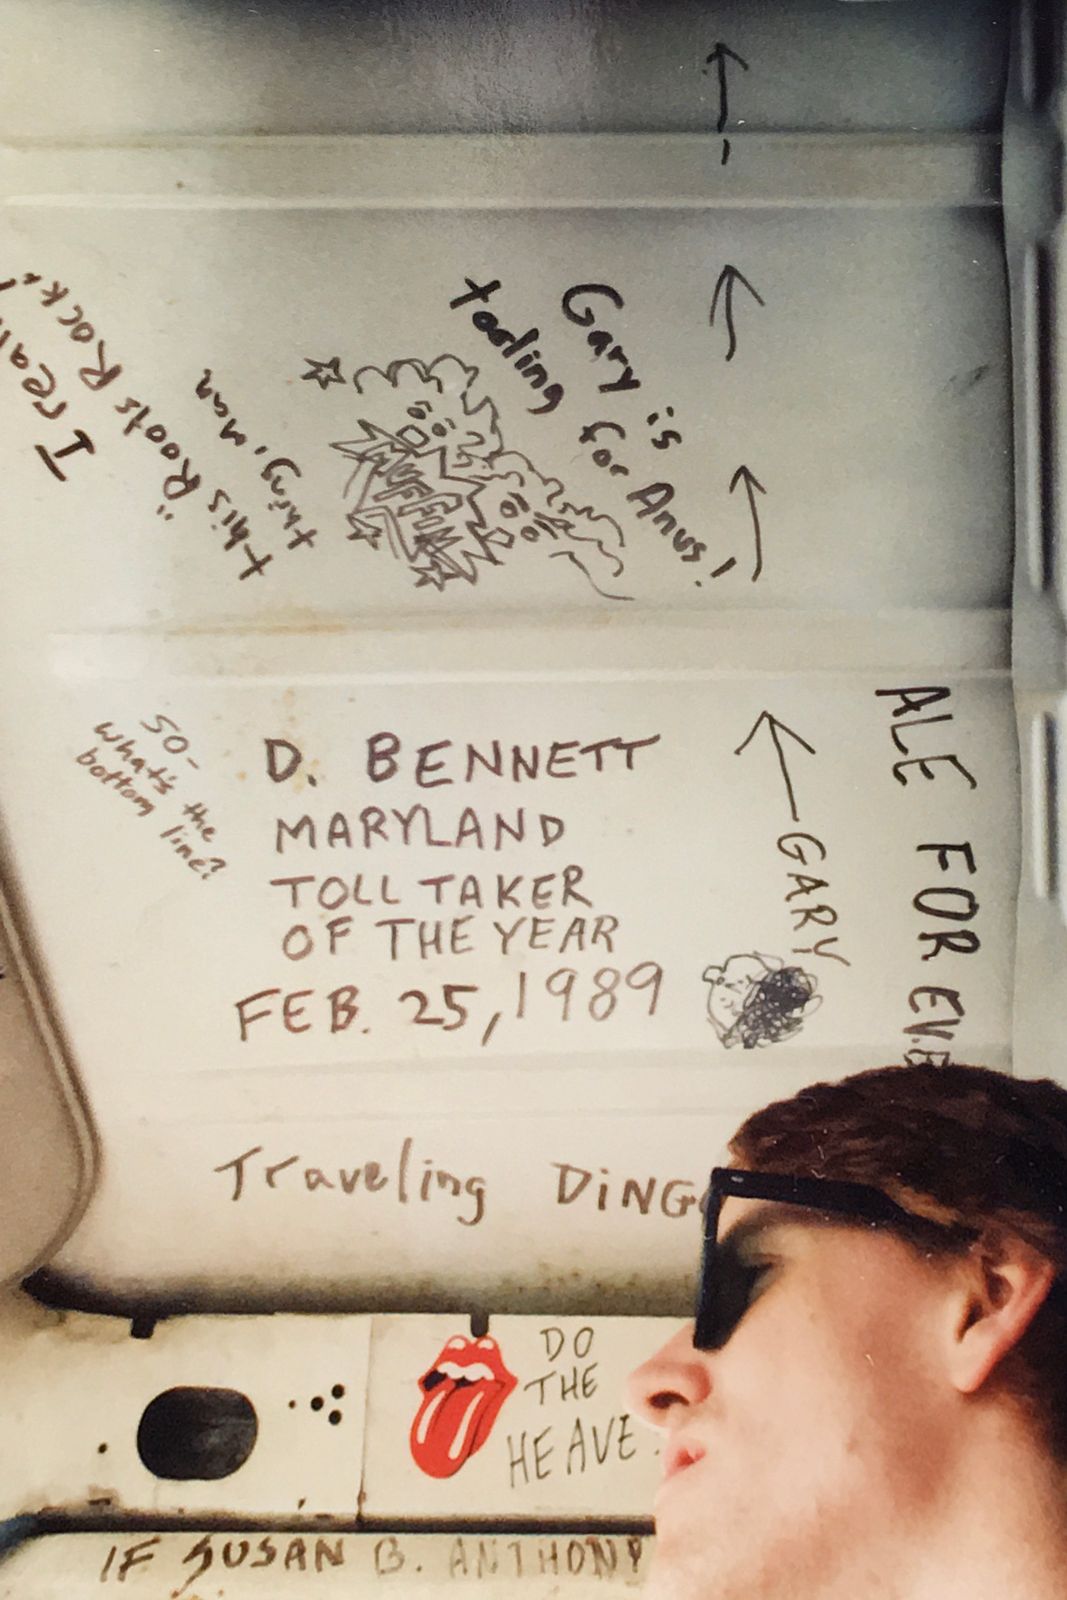 Gary is
toaling for Anus!
I
this "Roots Rock"
thing, man
RUFF
ALE FOR EVE
SO-
what's the
bottom line?
D. BENNETT
MARYLAND
TOLL TAKER
OF THE YEAR
FEB. 25, 1989
GARY
Traveling DiNG
DO
THE
HEAVE
IF SUSAN B. ANTHONY